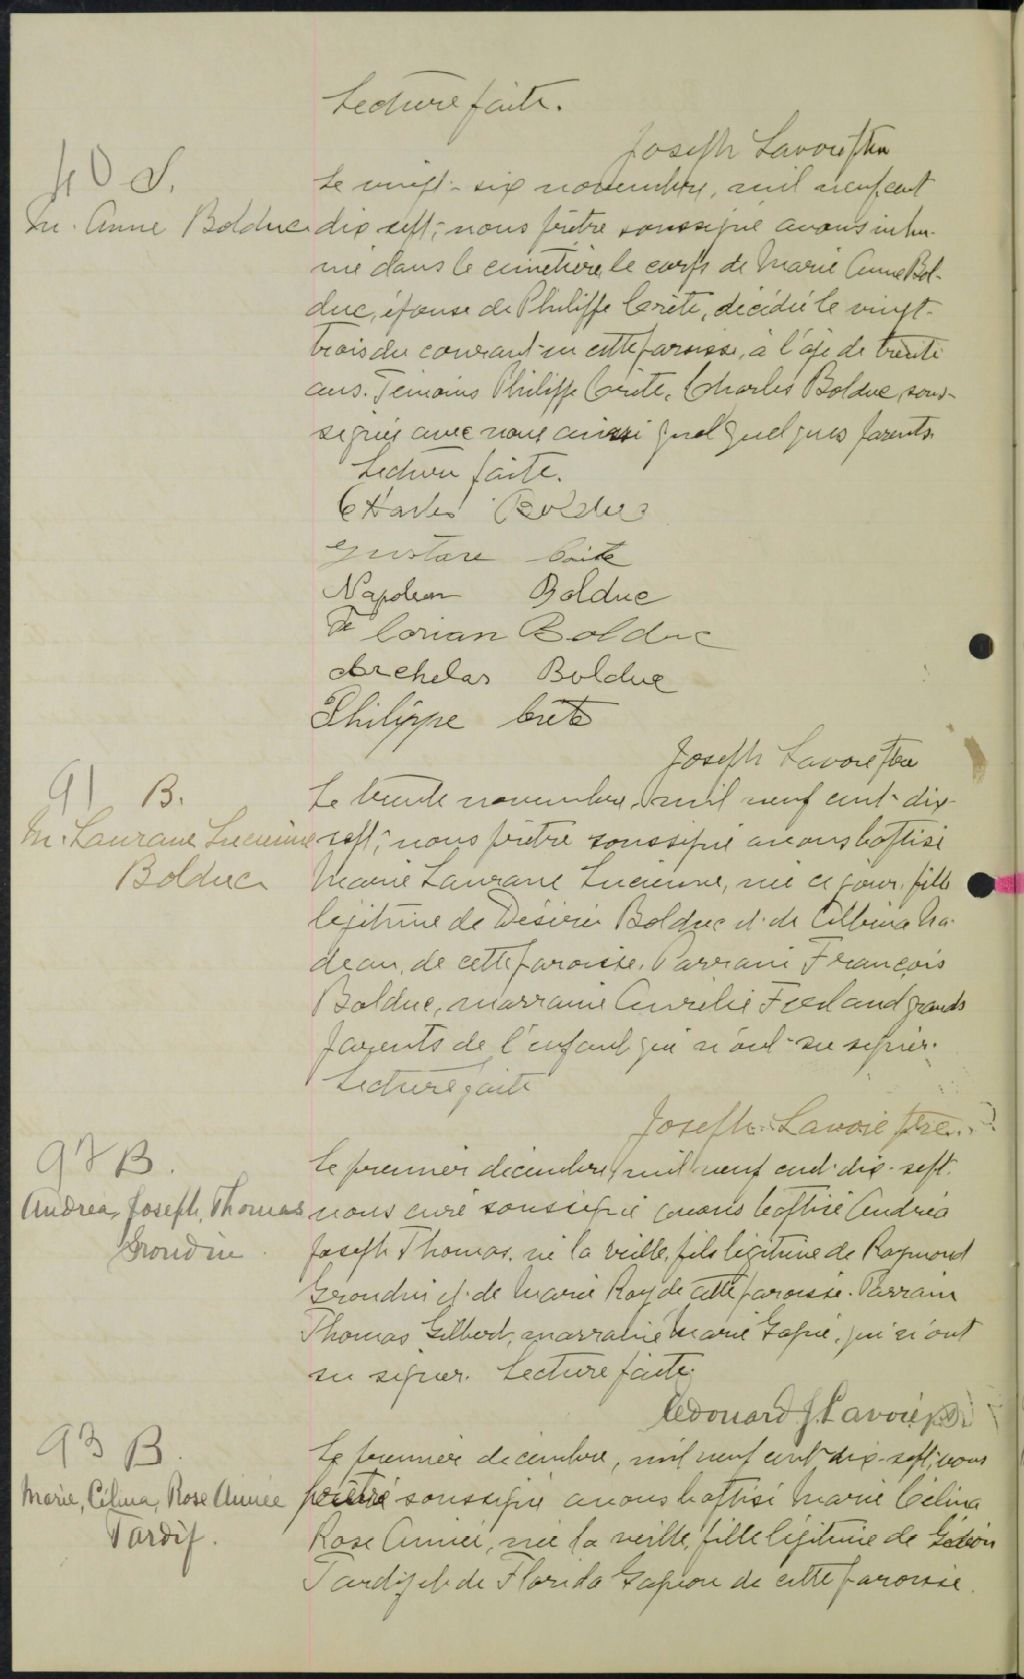 Lecture faite.
Joseph Lavoie ptre
40 S.
Le vingt-six novembre, mil neuf cent
M. Anne Bolduc
dix sept; nous prêtre soussigné avons inhu-
mé dans le cimetière, le corps de Marie Anne Bol-
duc, épouse de Philippe Crête, décédée le vingt-
trois du courant en cette paroisse, à l'âge de trente
ans. Témoins Philippe Crête, Charles Bolduc, sous-
signés avec nous ainsi que quelques parents.
Lecture faite.
Charles Bolduc
Gustave Crête
Napoleon Bolduc
Florian Bolduc
Archelas Bolduc
Philippe Crête
Joseph Lavoie ptre
91 B.
Le trente novembre, mil neuf cent dix-
M. Laurane Lucienne
sept; nous prêtre soussigné avons baptisé
Bolduc
Marie Laurane Lucienne, née ce jour, fille
légitime de Désiré Bolduc et de Albina Na-
deau, de cette paroisse. Parrain François
Bolduc, marraine Aurélie Ferland grands
parents de l'enfant qui n'ont su signer.
Lecture faite
Joseph Lavoie ptre.
92 B.
Le premier décembre, mil neuf cent dix-sept.
Andrea, Joseph, Thomas
nous curé soussigné avons baptisé Andréa
Grondin
Joseph Thomas, né la veille, fils légitime de Raymond
Grondin et de Marie Roy de cette paroisse. Parrain
Thomas Gilbert, marraine Marie Gagné, qui n'ont
su signer. Lecture faite.
Edouard J. Lavoie
93 B.
Le premier decembre, mil neuf cent dix-sept; nous
Marie, Célina, Rose Aimée
prêtre soussigné avons baptisé Marie Célina
Tardif.
Rose Aimée, née la veille, fille légitime de Gédéon
Tardif et de Florida Gagnon de cette paroisse.